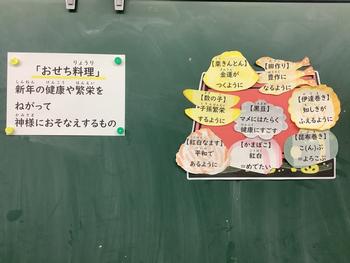 「おせち料理」
りょうり
新年の健康や繁栄を
しんねん けんこう はんえい
ねがって
神様におそなえするもの
かみさま
【栗きんとん】
金運が
つくように
【田作り】
豊作に
なるように
【数の子】
子孫繁栄
するように
【黒豆】
マメにはたらく
健康にすごす
【伊達巻き】
知しきが
ふえるように
【紅白なます】
平和で
あるように
【かまぼこ】
紅白
=めでたい
【昆布巻き】
こ(ん)ぶ
=よろこぶ